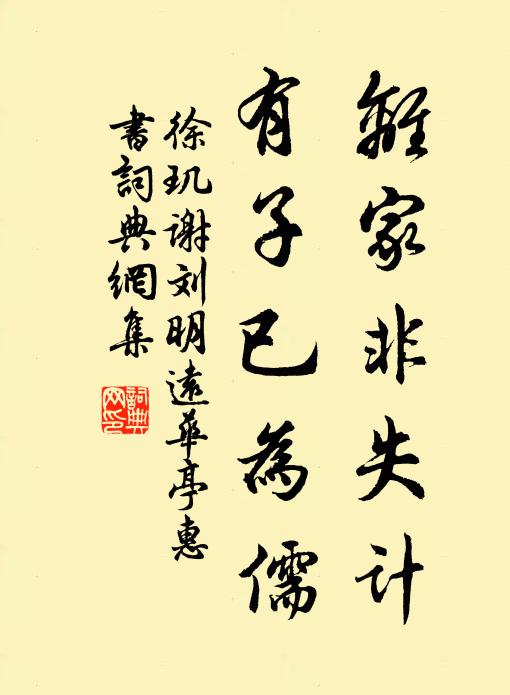 離家非失计
有子已為儒
徐玑谢刘明遠華亭惠
書詞典網集
詞典
网印